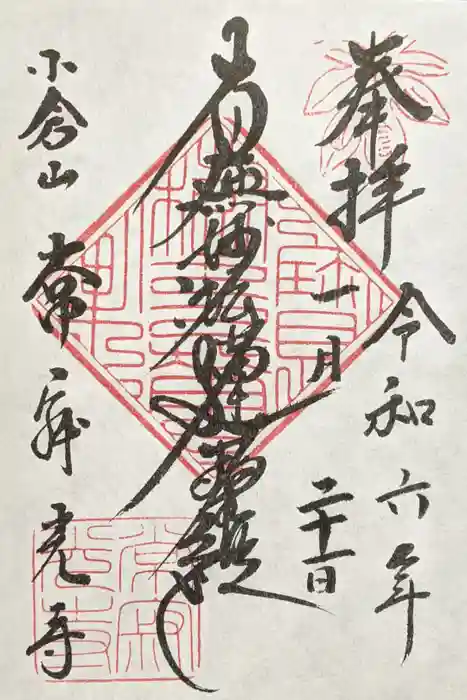 奉拝
令和六年
一月二十一日
南無妙法蓮華経
小倉山 常寂光寺
常寂光寺